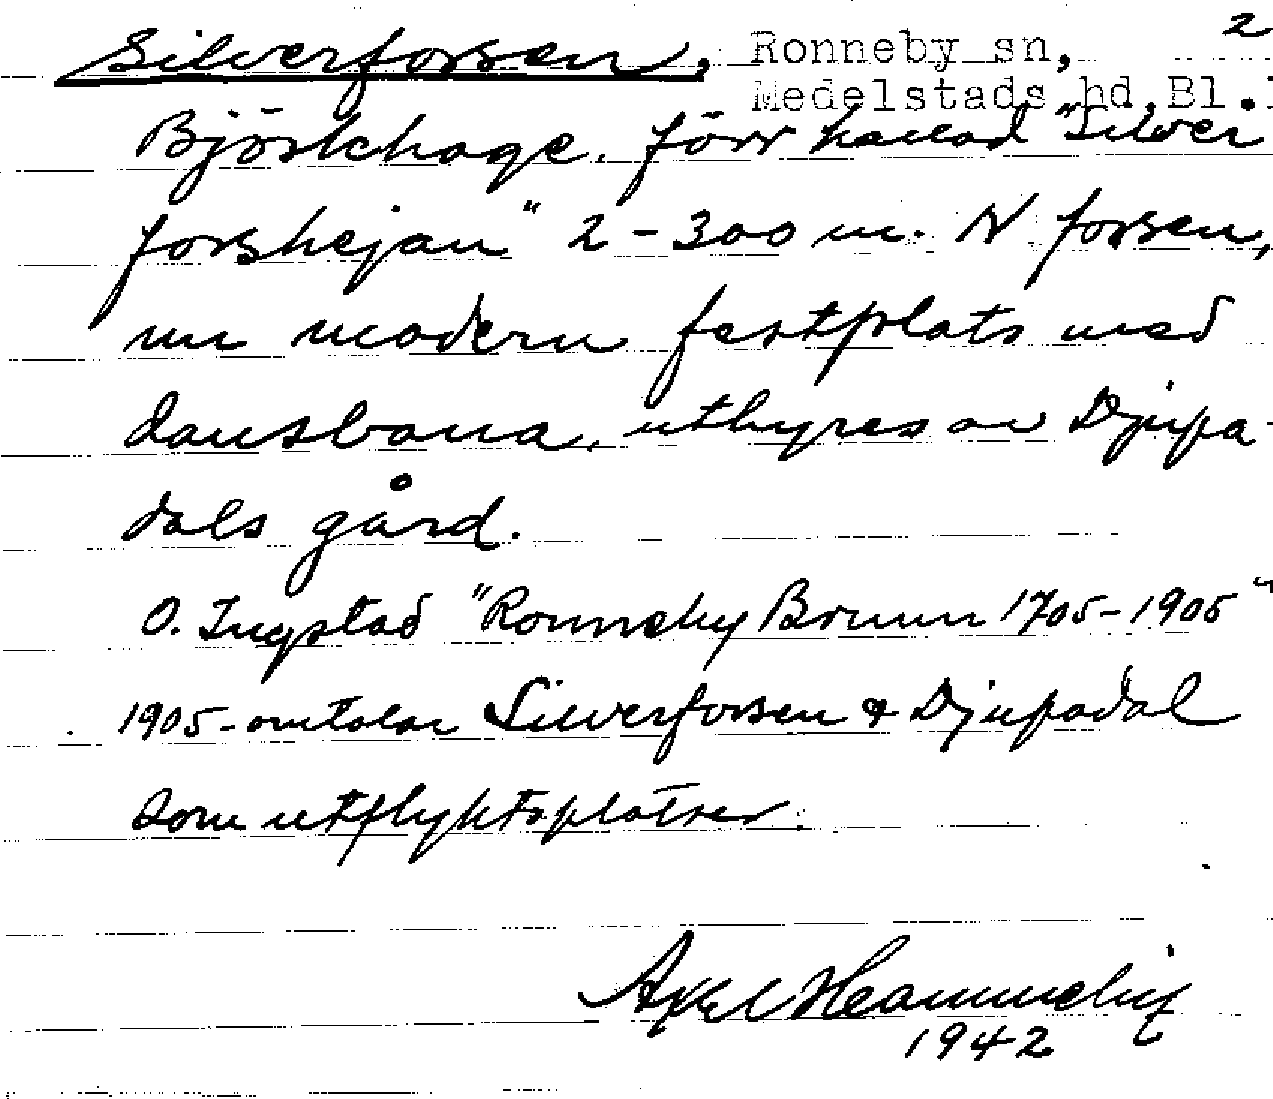 2
Silverforsen, Ronneby sn,
Medelstads hd, Bl.
Björkhage, förr kallad "Silver
forshejan" 2-300 m. N forsen,
nu modern festplats med
dansbana, uthyres av Djupa-
dals gård.
O. Ingstad "Ronneby Brunn 1705-1905"
1905 - omtalar Silverforsen & Djupadal
som utflyktsplatser.
Axel
1942